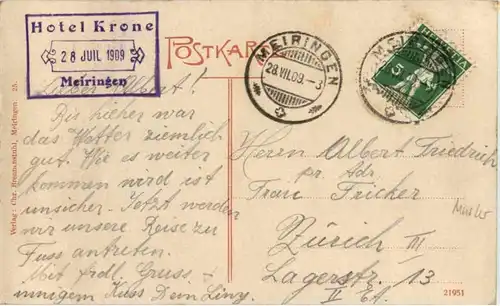 Hotel Krone
28 JUIL 1909
Meiringen
POSTKARTE
MEIRINGEN
28.VII.09.–3
MEIRINGEN
HELVETIA
5
Lieber Albert!
Bis hierher war
das Wetter ziemlich
gut. Wie es weiter
kommen wird ist
unsicher. Jetzt werden
wir unsere Reise zu
Fuss antreten.
Mit frdl. Gruss &
innigem Kuss Dein Liny
Herrn Albert Friedrich
pr. Adr.
Frau Fricker
Zürich III
Lagerstr. 13
II Et.
Verlag: Chr. Brennenstuhl, Meiringen 25.
21951